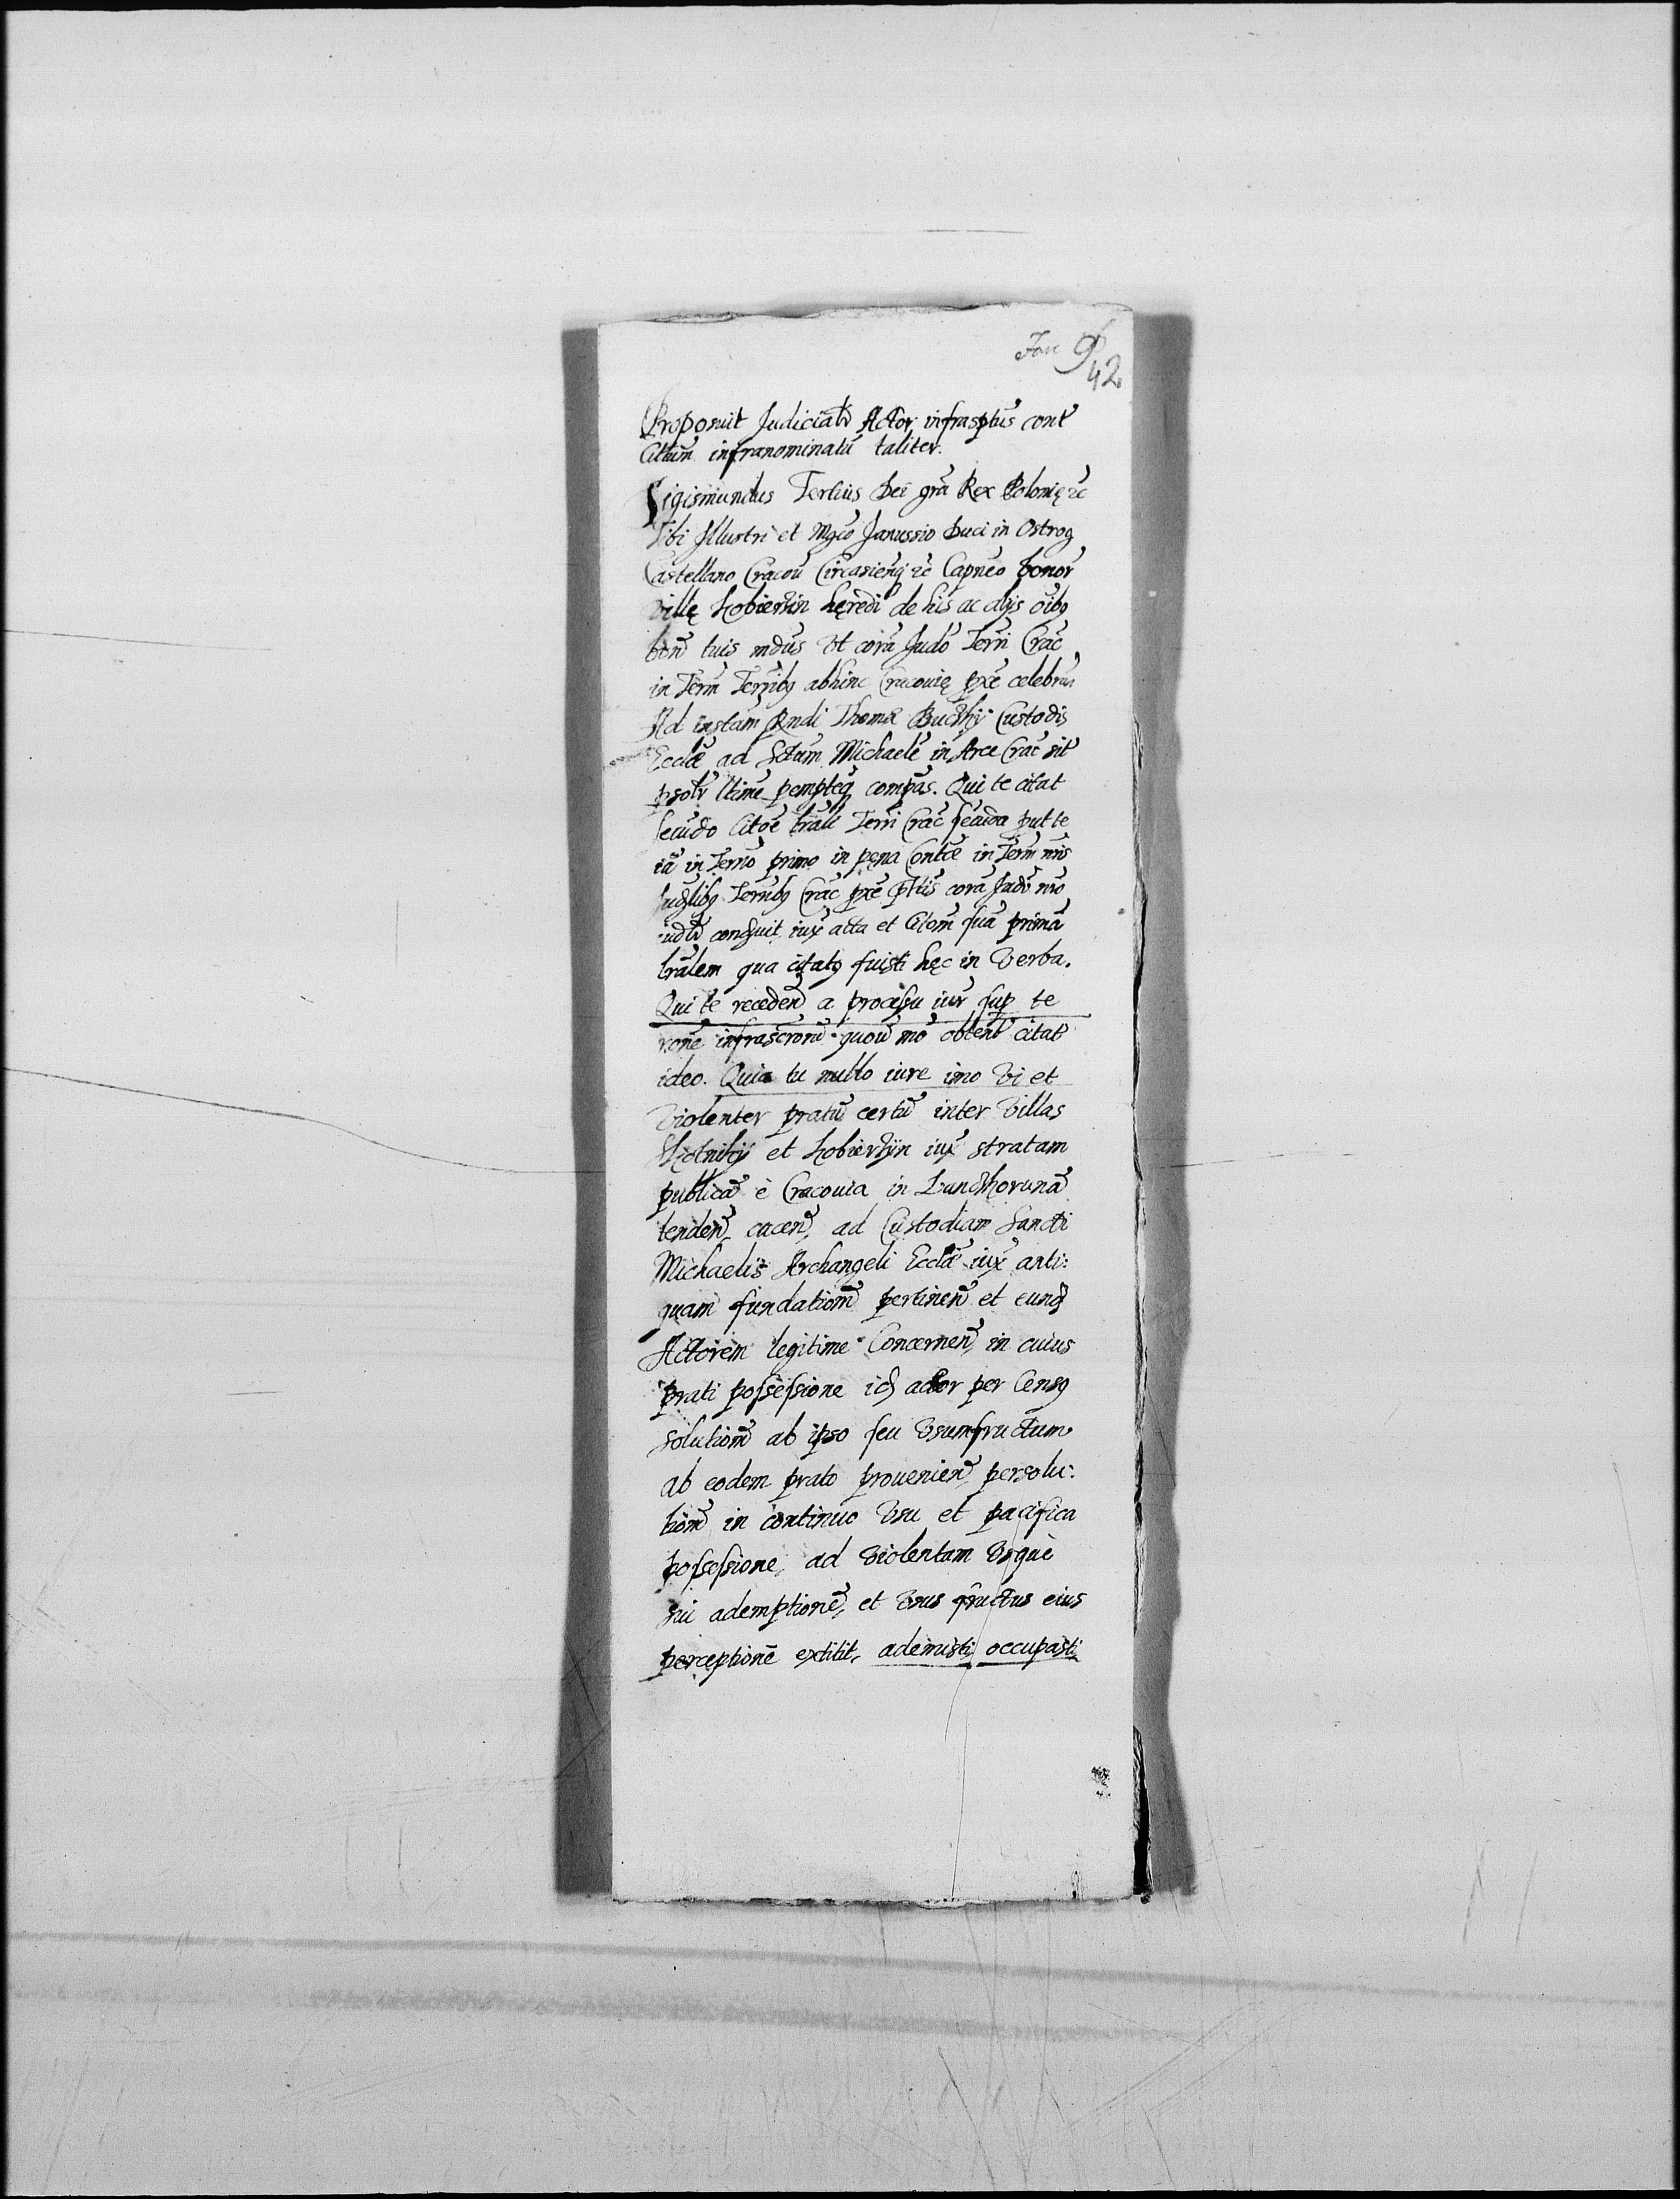 42
Proposuit Judicialr̃ Actor infrasptus̃ cont̃
Citatum̃ infranominatũ taliter.
Sigismundus Tertius Dei grã Rex Polonię ꝛc
Tibi Illustri et Mgcõ Janussio Duci in Ostrog
Castellano Cracoũ Circasieñ ꝛc Capneõ bonor̃
villę Kobierzin hęredi de his ac alijs oĩbꝫ
boñ tuis mdũs Vt corã Judõ Terrĩ Crac̃
in Term̃ Terrĩbꝫ abhinc Cracouię pxẽ celebrañ
Ad instam̃ Rndi Thomæ Custodis
Eccłæ ad Sctum̃ Michaelẽ in Arce Crac̃ sit̃
psolr̃ ltime pempteq̃ compãs. Qui te citat
Secũdo Citõe trãli Terrĩ Crac̃ put te
iã in Termõ primo in pęna Contæ̃ in Term̃ nrĩs
Judłibꝫ Terrĩbꝫ Crac̃ pxẽ ptĩs corã Judõ nrõ
iudłr conduit iux̃ acta et Citom̃ suã primã
lrãlem qua citatꝫ fuisti hęc in Verba.
Qui te recedeñ a processu iur̃ sup te
rõne infrascrõrũ quoũ mõ obtent̃ citat̃
ideo. Quia tu nullo iure imo Vi et
Violenter pratũ certũ inter Villas
Skotniky et Kobierzyn iux̃ stratam
publicã è Cracouia in Landskorunã
tendeñ, iaceñ, ad Custodiam Sancti
Michaelis Archangeli Eccłæ iux̃ anti:
quam fundationẽ pertineñ et eund̃
Actorem legitime Concerneñ, in cuius
prati possessione id̃ actor per Censꝫ
solutionẽ ab ipso seu Vsumfructum
ab eodem prato prouenieñ, persolu:
tionẽ in continuo Vsu et pacifica
possessione, ad Violentam Vsquè
sui ademptionẽ, et Vsus fructus eius
perceptionẽ extitit, ademisti, occupasti,